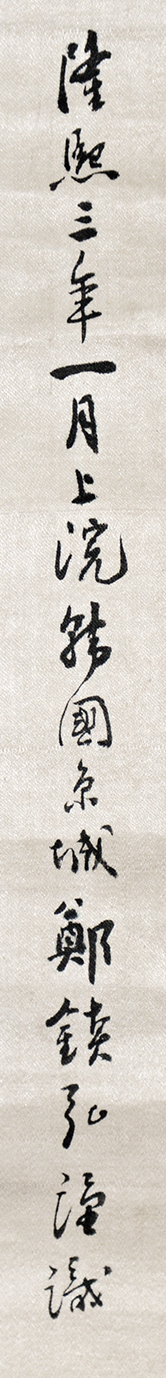 隆熙三年一月上浣韓國京城鄭鎮弘謹識